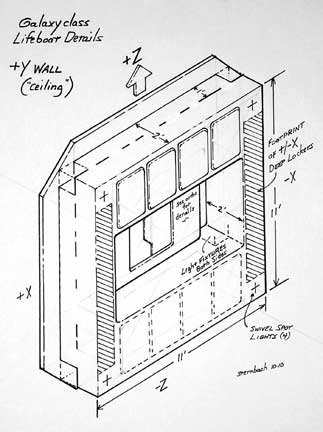 Galaxy class
Lifeboat Details
+Y WALL
("ceiling")
+Z
2'
2'
FOOTPRINT
OF +/-X
DEEP LOCKERS
-X
see
for
details
2'
Light Fixtures
Both Sides
11'
+X
SWIVEL SPOT
LIGHTS (4)
11'
-Z
sternbach 10.10